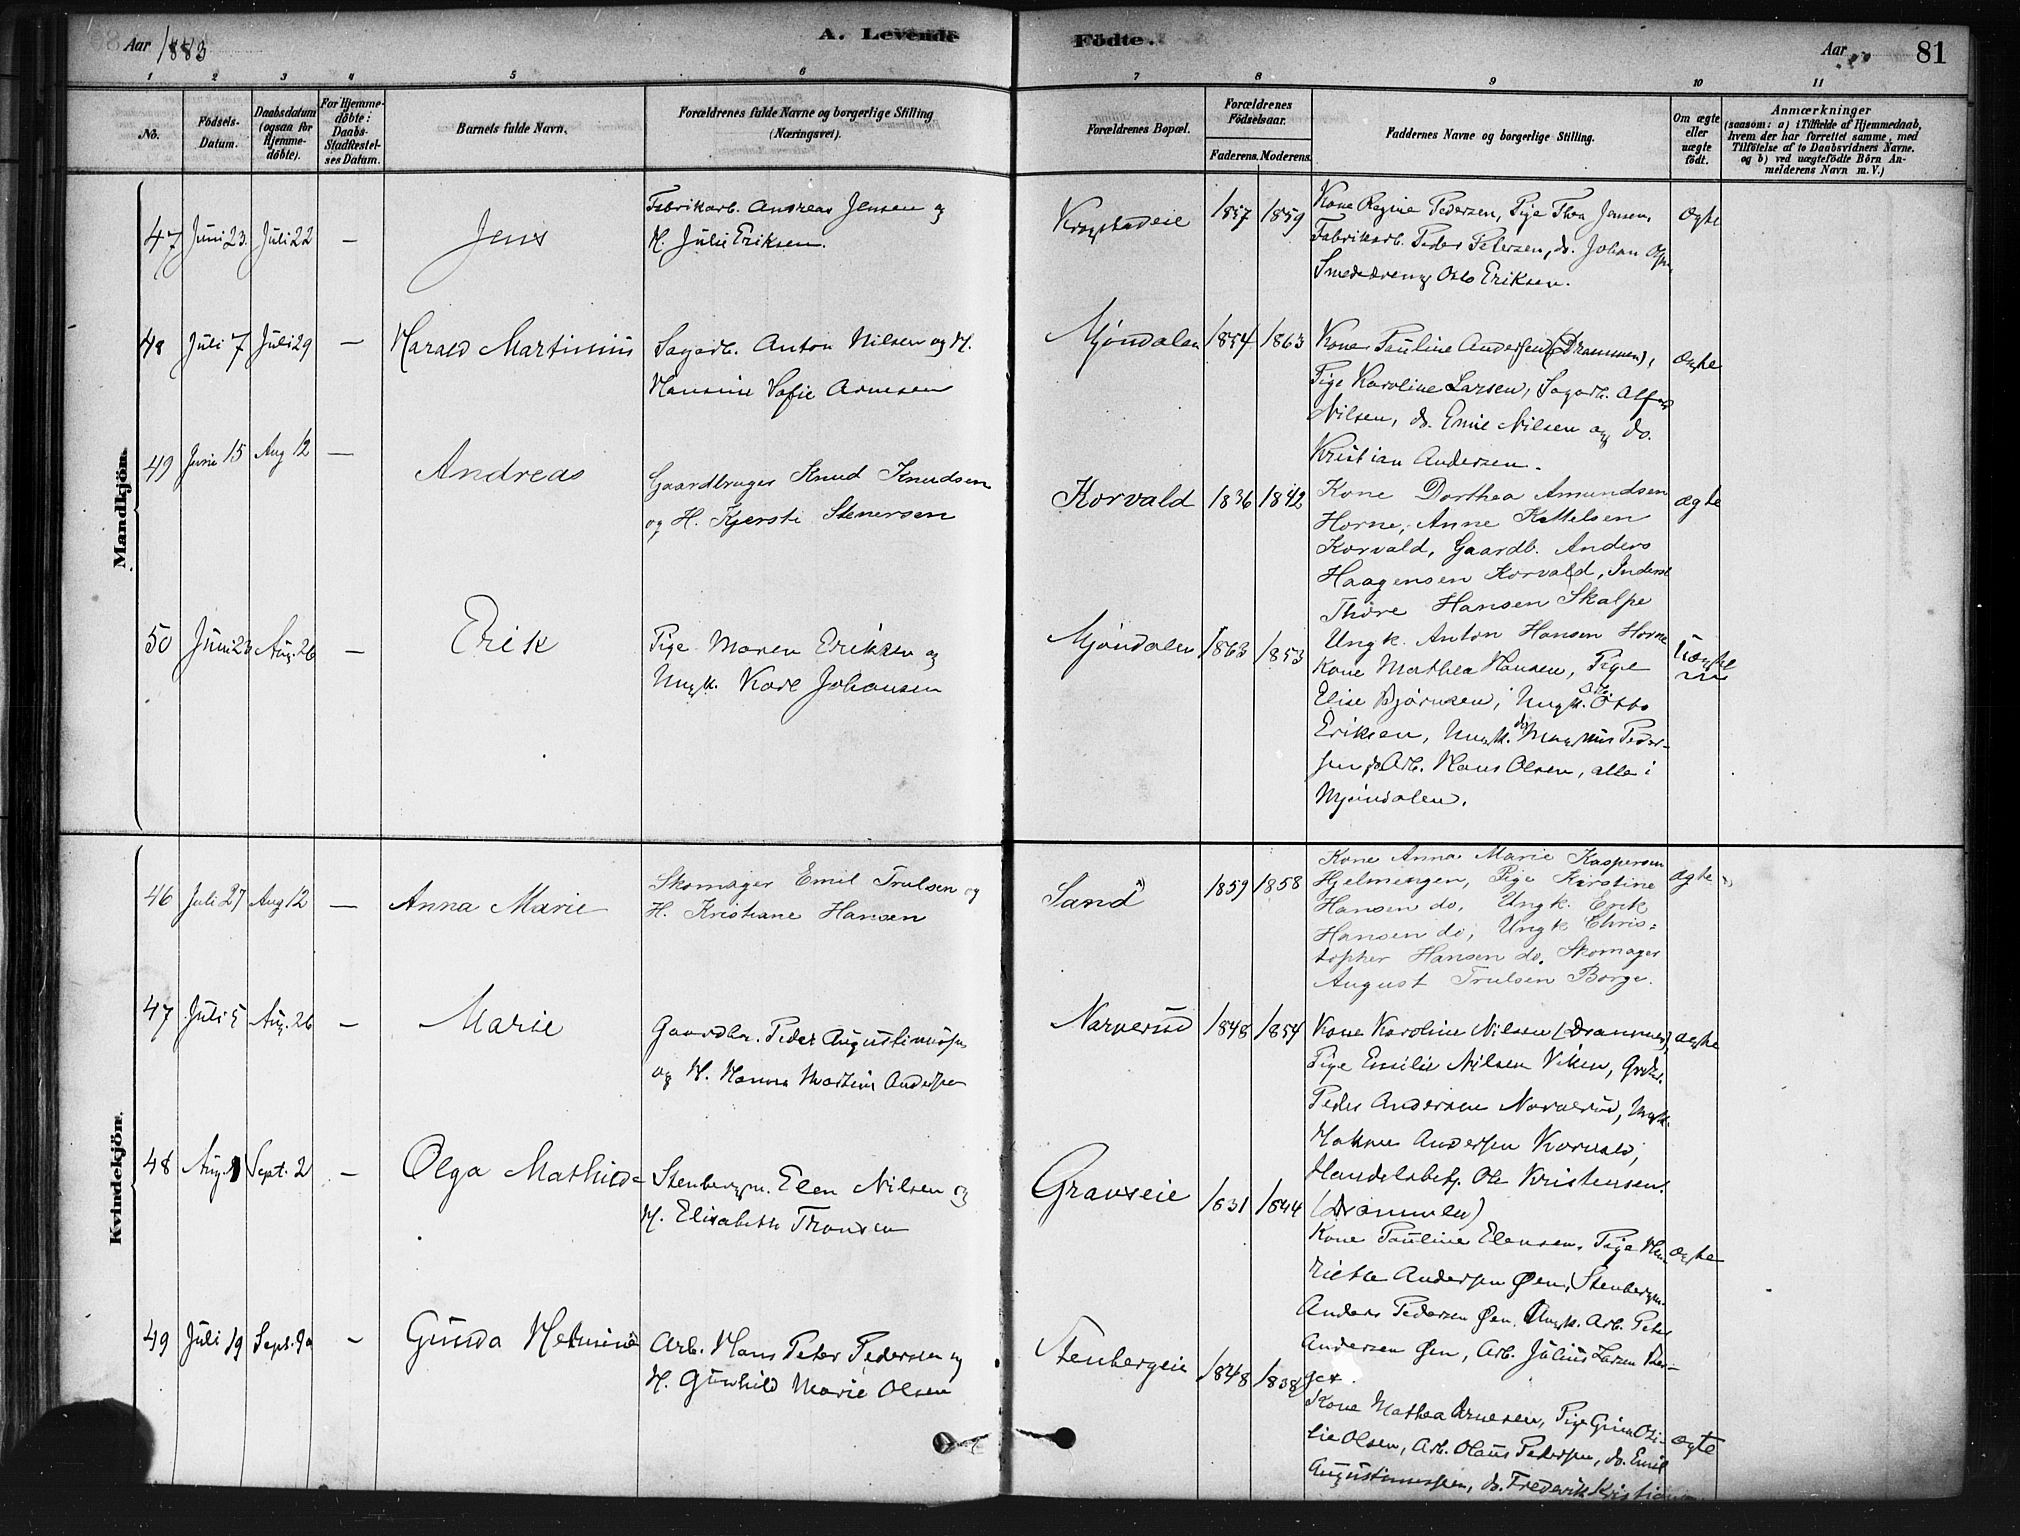 Aar 1883
A. Levende
Födte.
Aar
81
1 2 3 4 5 6 7 8 9 10 11
No.
Födsels-
Datum.
Daabsdatum
(ogsaa for
Hjemme-
döbte).
For Hjemme-
döbte:
Daabs-
Stadfæstel-
ses Datum.
Barnets fulde Navn.
Forældrenes fulde Navne og borgerlige Stilling
(Næringsvei).
Forældrenes Bopæl.
Forældrenes
Födselsaar.
Faderens. Moderens.
Faddernes Navne og borgerlige Stilling.
Om ægte
eller
uægte
födt.
Anmærkninger
(saasom: a) i Tilfælde af Hjemmedaab,
hvem der har forrettet samme, med
Tilföielse af to Daabsvidners Navne.
og b) ved uægtefödte Börn An-
melderens Navn m. V.)
Mandkjön.
47 Juni 23. Juli 22 — Jens
Fabrikarb. Andreas Jensen og
H. Julie Eriksen.
Krogstadeie 1857 1859
Kone Regine Pedersen, Pige Thea Jensen,
Fabrikarb. Peder Petersen, do. Johan
Smededreng Otto Eriksen.
ægte
48 Juli 7 Juli 29 — Harald Martinius
Sagarb. Anton Nilsen og H.
Hansine Sofie Arnesen
Mjøndalen 1854 1863
Kone Pauline Andersen (Drammen),
Pige Karoline Larsen, Sagarb. Alfred
Nilsen, do. Emil Nilsen og do.
Kristian Andersen.
ægte
49 Juni 15 Aug 12 — Andreas
Gaardbruger Knud Knudsen
og H. Kjersti Stenersen
Korvald 1836 1842
Kone Dorthea Amundsen
Horne, Anne Kittelsen
Korvald, Gaardb. Anders
Haagensen Korvald, Inderst
Thore Hansen Skalpe
Ungk. Anton Hansen Horne
ægte
50 Juni 23 Aug. 26 — Erik
Pige Maren Eriksen og
Ungk. Karl Johansen
Mjøndalen 1863 1853
Kone Mathea Hansen, Pige
Elise Bjørnsen, Ungk. Arb. Otto
Eriksen, Ungk. do Magnus Peder-
sen, Arb. Hans Olsen, alle i
Mjøndalen.
Uægte
Kvindekjön.
46 Juli 27 Aug 12 — Anna Marie
Skomager Emil Trulsen og
H. Kristiane Hansen
Sand 1859 1858
Kone Anna Marie Kaspersen
Hjelmengen, Pige Kirstine
Hansen do, Ungk. Erik
Hansen do, Ungk Chris-
topher Hansen do. Skomager
August Trulsen Borge.
ægte
47 Juli 5 Aug. 26 — Marie
Gaardbr. Peder Augustinussen
og H. Hanna Martine Andersen
Narverud 1848 1854
Kone Karoline Nilsen (Drammen),
Pige Emilie Nilsen Viken, Grdbr.
Peder Andersen Narverud, Ungk.
Andersen Korvald,
Handelsbetj. Ole Kristensen.
(Drammen)
ægte
48 Aug. Sept. 2 — Olga Mathilde
Stenbergm. Elen Nilsen og
H. Elisabeth Tronsen
Gravseie 1831 1844
Kone Pauline Elensen, Pige Hen-
riette Andersen Øen, Stenbergm.
Anders Pedersen Øen, Ungk. Arb. Peter
Andersen Øen, Arb. Julius Larsen
ægte
49 Juli 19 Sept. — Gunda Helmine
Arb. Hans Peter Pedersen og
H. Gunhild Marie Olsen
Stenbergeie 1848 1838
Kone Mathea Arnesen, Pige
Olsen, Arb. Olaus Pedersen, do. Emil
Augustinussen, do. Frederik
ægte